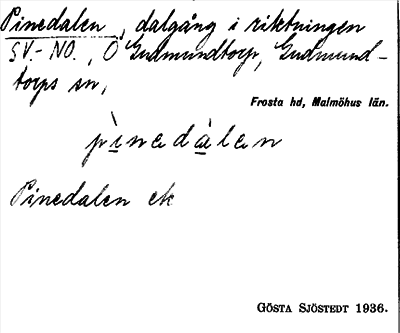 Pinedalen, dalgång i riktningen
SV.-NO., Ö Gudmundtorp, Gudmund-
torps sn,
Frosta hd, Malmöhus län.
pìnedàlen
Pinedalen ek
GÖSTA SJÖSTEDT 1936.